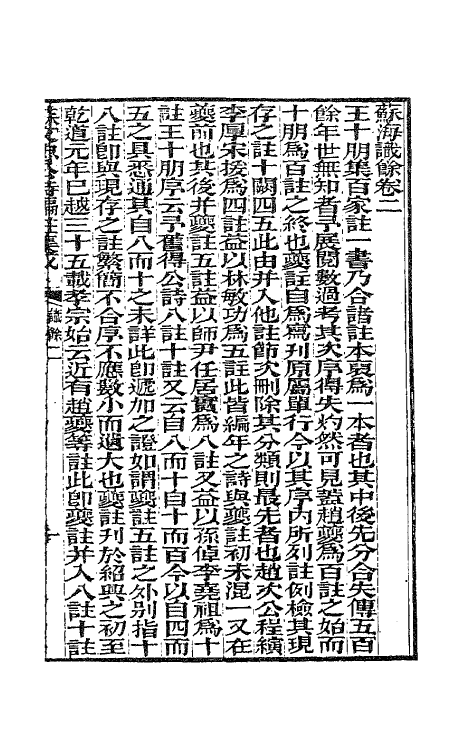 蘇海識餘卷二
王十朋集百家註一書乃合諸註本裒爲一本者也其中後先分合失傳五百
餘年世無知者予展閱數過考其次序得失灼然可見蓋趙夔爲百註之始而
十朋爲百註之終也夔註自爲寫刋原屬單行今以其序內所列註例檢其現
存之註十闕四五此由并入他註節次刪除其分類則最先者也趙次公程縯
李厚宋援爲四註益以林敏功爲五註此皆編年之詩與夔註初未混一又在
夔前也其後并夔註五註益以師尹任居實爲八註又益以孫倬李堯祖爲十
註王十朋序云予舊得公詩八註十註又云自八而十自十而百今以自四而
五之具悉通其自八而十之未詳此卽遞加之證如謂夔註五註之外別指十
八註卽與現存之註繁簡不合序不應數小而遺大也夔註刋於紹興之初至
乾道元年已越三十五載孝宗始云近有趙夔等註此卽夔註并入八註十註